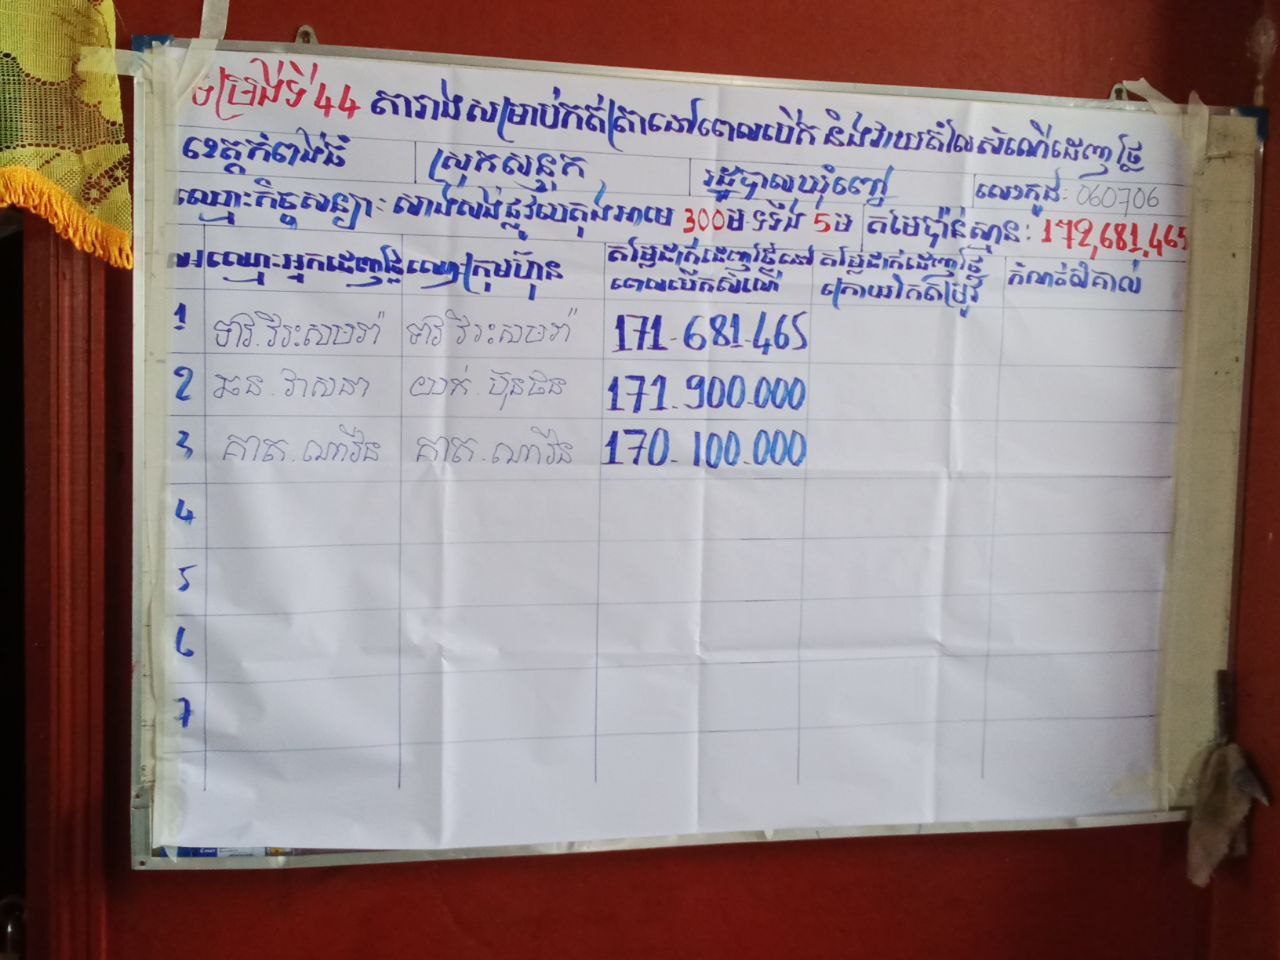 ទម្រង់ទី 44 តារាងសម្រាប់កត់ត្រានៅពេលបើក និងវាយតំលៃសំណើដេញថ្លៃ
ខេត្តកំពង់ធំ ស្រុកសន្ទុក រដ្ឋបាលឃុំ លេខកូដ: 060706
ឈ្មោះកិច្ចសន្យា: សាងសង់ផ្លូវបេតុងអាមេ 300ម ទទឹង 5ម តម្លៃប៉ាន់ស្មាន: 172,681,465
ល.រ ឈ្មោះអ្នកដេញថ្លៃ ឈ្មោះក្រុមហ៊ុន តម្លៃដាក់ដេញថ្លៃនៅពេលបើកសំណើ តម្លៃដាក់ដេញថ្លៃក្រោយកែតម្រូវ កំណត់សំគាល់
1 171.681.465
2 ឆន. វាសនា យក់. ប៊ុនធន 171.900.000
3 គាត. ណារីន គាត. ណារីន 170.100.000
4
5
6
7